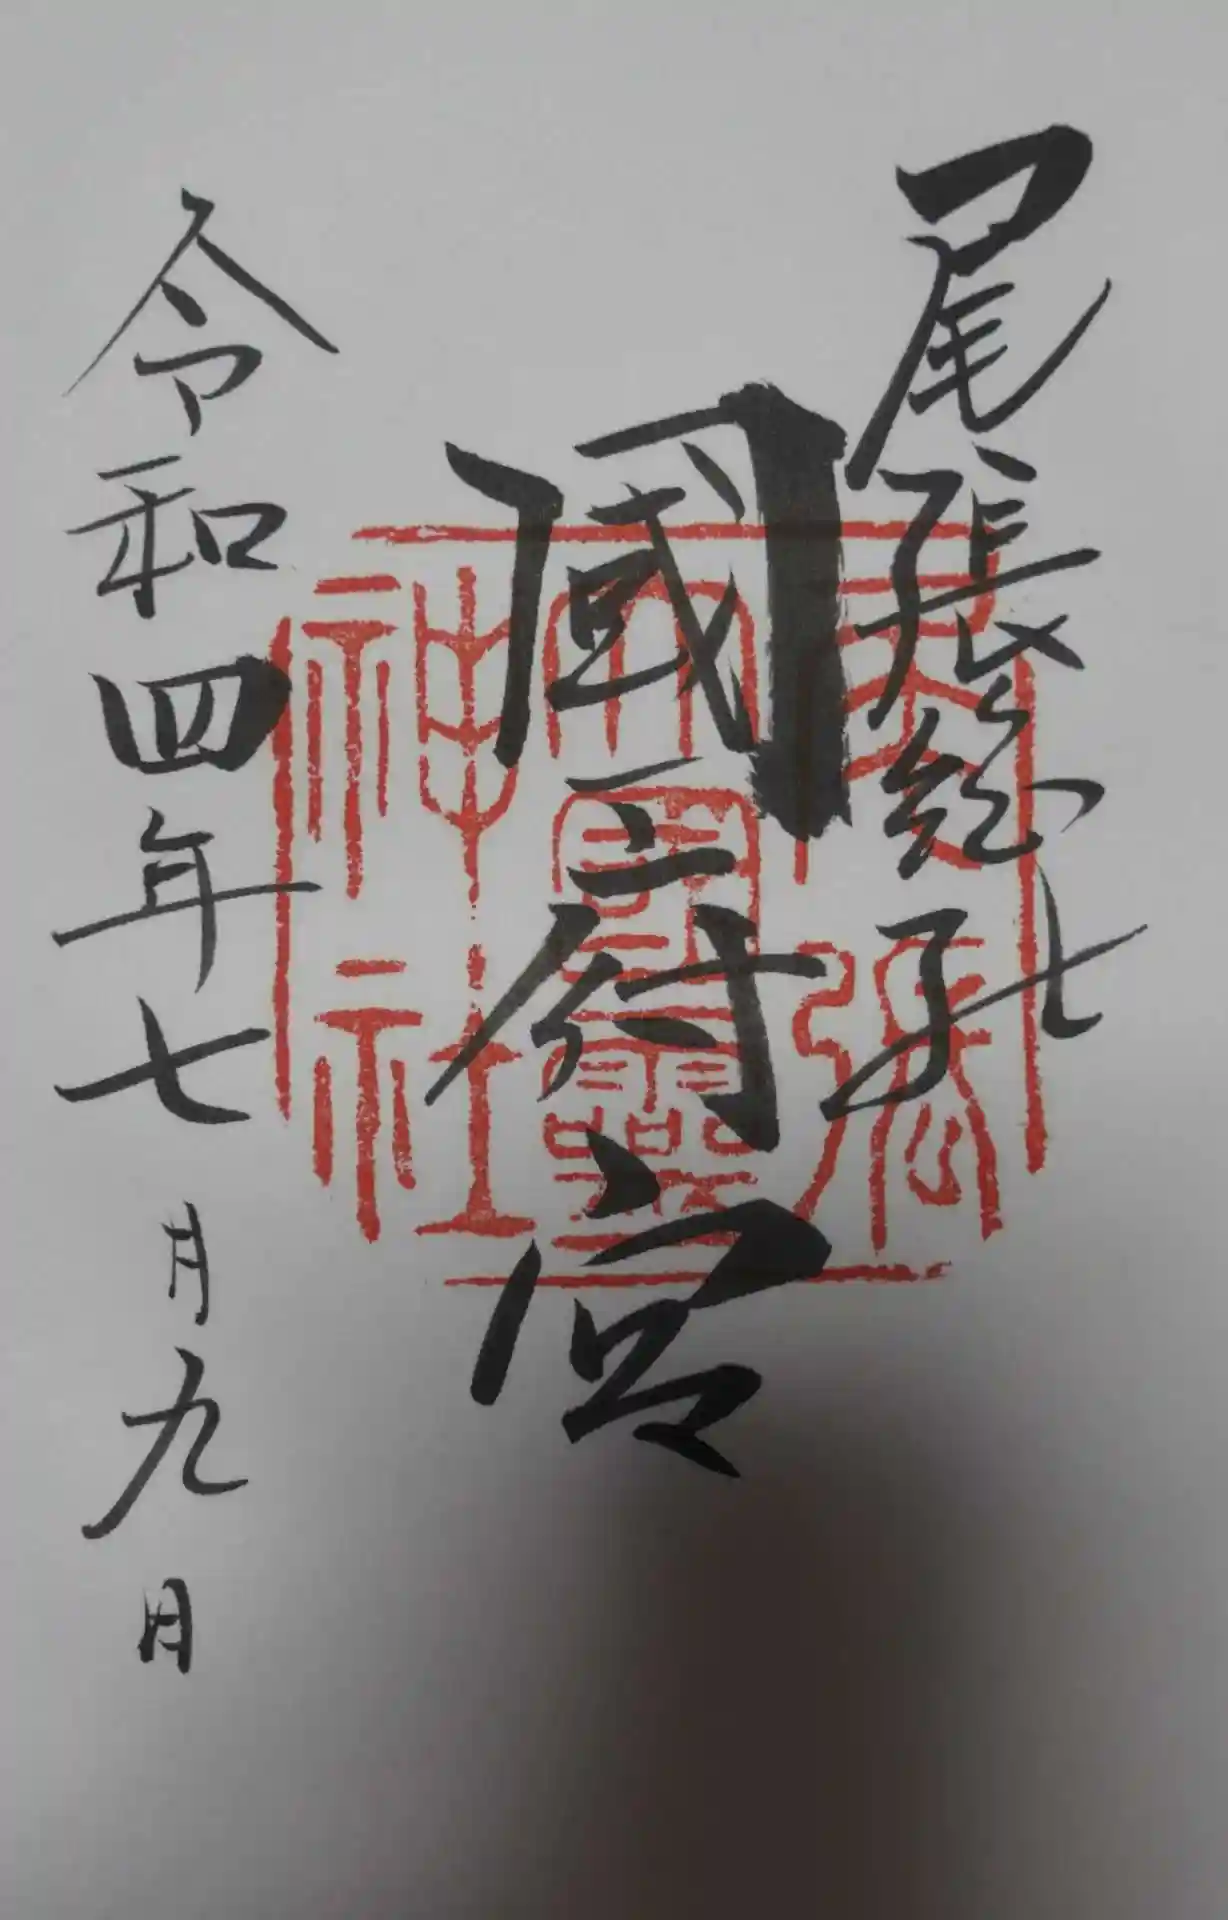 尾張総社
國府宮
令和四年七月九日
尾張
大國靈
神社